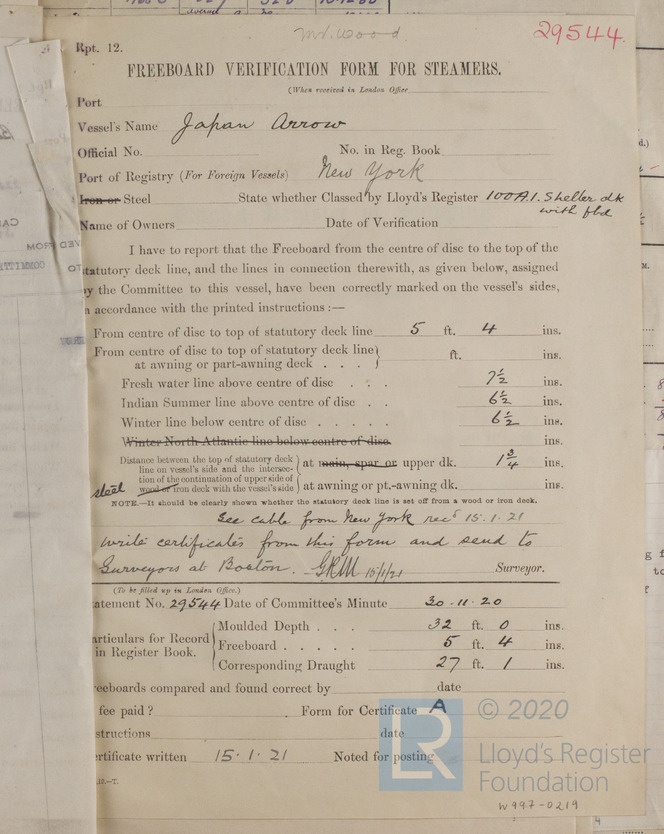 Mr. Wood
29544
Rpt. 12.
FREEBOARD VERIFICATION FORM FOR STEAMERS.
(When received in London Office
Port
Vessel's Name Japan Arrow
Official No. No. in Reg. Book
Port of Registry (For Foreign Vessels) New York
Iron or Steel State whether Classed by Lloyd's Register 100A.1. Shelter dk
with fbd
Name of Owners Date of Verification
I have to report that the Freeboard from the centre of disc to the top of the
statutory deck line, and the lines in connection therewith, as given below, assigned
by the Committee to this vessel, have been correctly marked on the vessel's sides,
n accordance with the printed instructions :—
From centre of disc to top of statutory deck line 5 ft. 4 ins.
From centre of disc to top of statutory deck line
at awning or part-awning deck . . . ft. ins.
Fresh water line above centre of disc . . . 7½ ins.
Indian Summer line above centre of disc . . 6½ ins.
Winter line below centre of disc . . . . . 6½ ins.
Winter North Atlantic line below centre of disc. ins.
Distance between the top of statutory deck
line on vessel's side and the intersec-
tion of the continuation of upper side of
steel wood or iron deck with the vessel's side
at main, spar or upper dk. 1¾ ins.
at awning or pt.-awning dk. ins.
NOTE.—It should be clearly shown whether the statutory deck line is set off from a wood or iron deck.
See cable from New York recd 15.1.21
Write certificates from this form and send to
Surveyors at Boston. GRM 15/1/21 Surveyor.
(To be filled up in London Office.)
atement No. 29544 Date of Committee's Minute 30.11.20
articulars for Record
in Register Book.
Moulded Depth . . . 32 ft. 0 ins.
Freeboard . . . . . 5 ft. 4 ins.
Corresponding Draught 27 ft. 1 ins.
eeboards compared and found correct by date
fee paid ? Form for Certificate A
structions date
rtificate written 15.1.21 Noted for posting
LR
© 2020
Lloyd's Register
Foundation
W997-0219